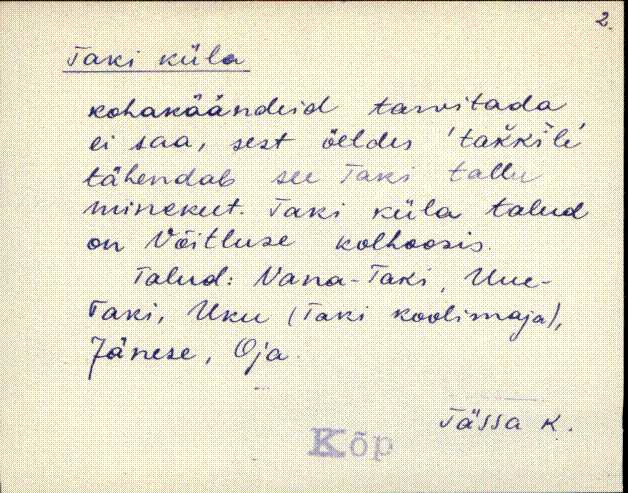 2.
Taki küla
kohakäändeid tarvitada
ei saa, sest öeldes 'takkile'
tähendab see Taki tallu
minekut. Taki küla talud
on Võitluse kolhoosis.
Talud: Vana-Taki, Uue-
Taki, Uku (Taki koolimaja),
Jänese, Oja.
Tässa k.
Kõp